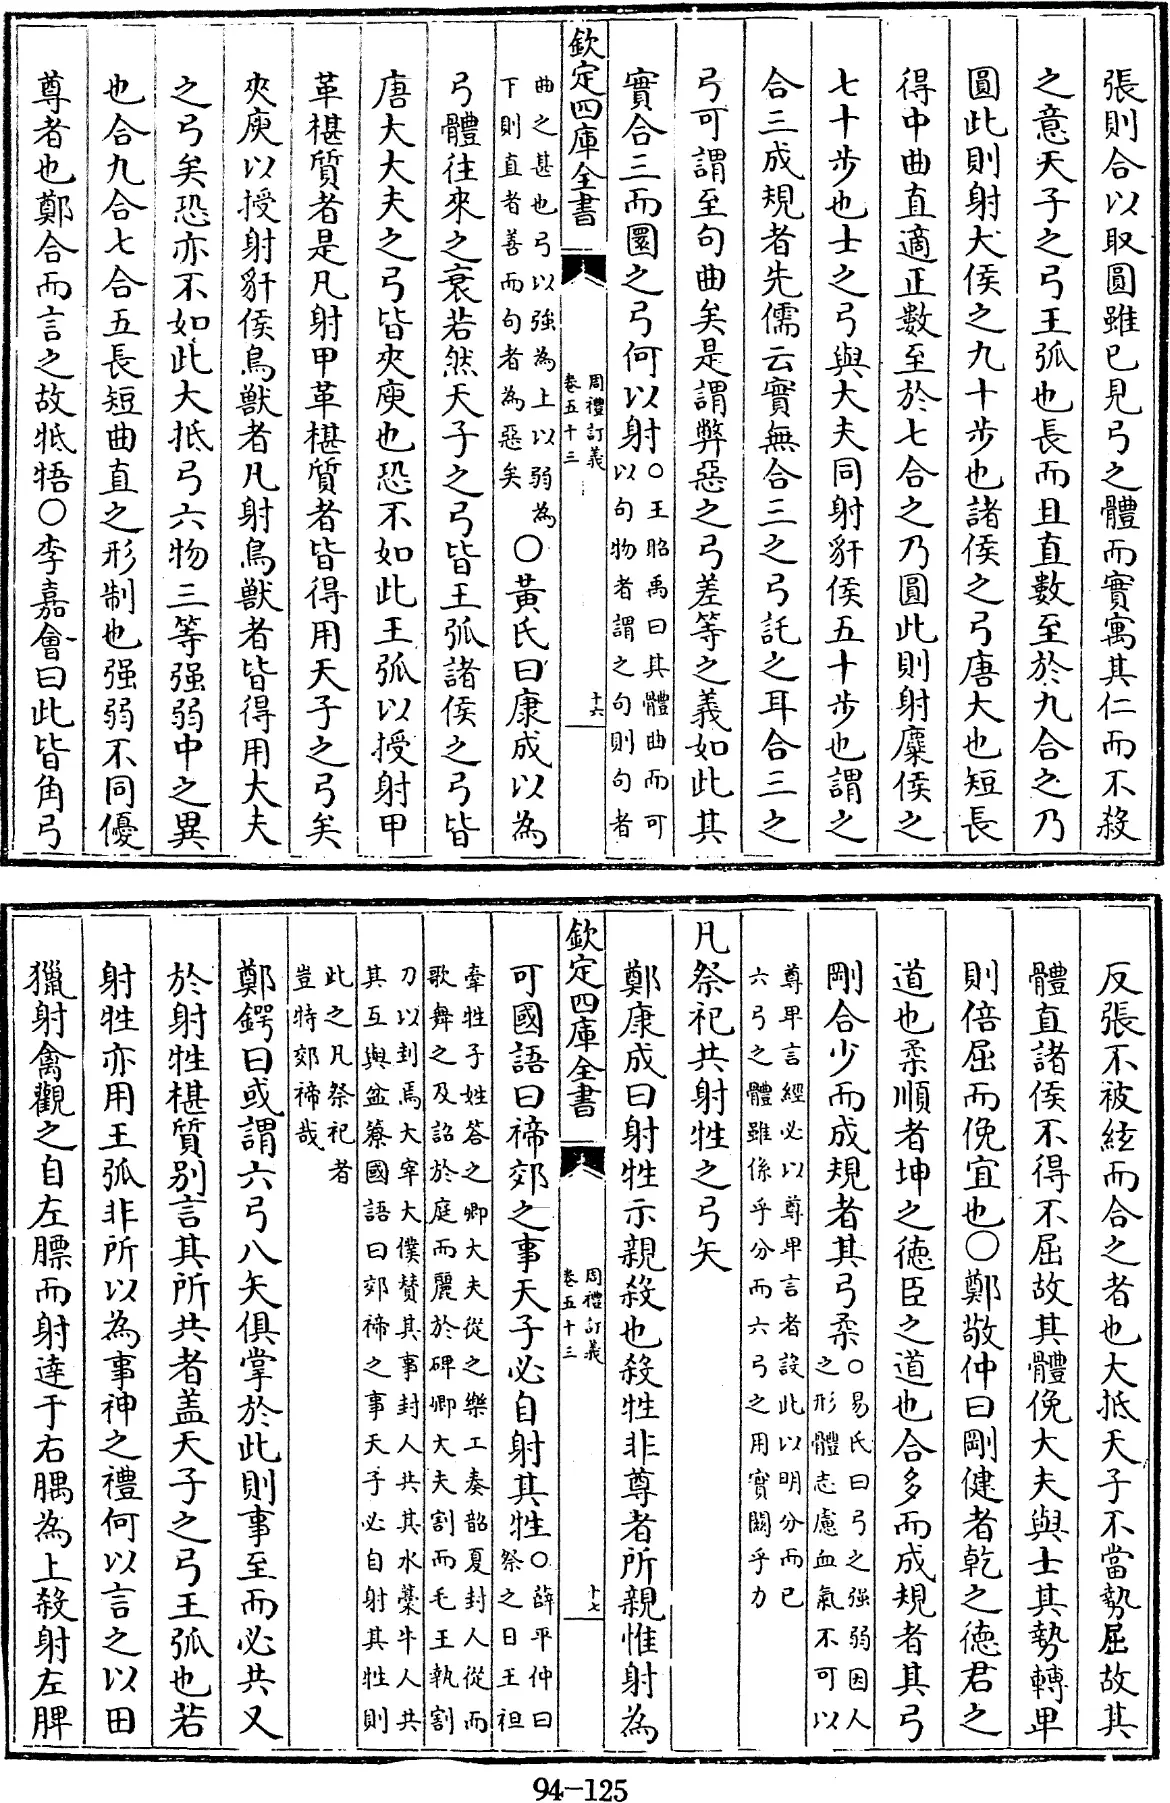 張則合以取圓雖已見弓之體而實寓其仁而不殺
之意天子之弓王弧也長而且直數至於九合之乃
圓此則射犬侯之九十步也諸侯之弓唐大也短長
得中曲直適正數至於七合之乃圓此則射麋侯之
七十步也士之弓與大夫同射豻侯五十步也謂之
合三成規者先儒云實無合三之弓託之耳合三之
弓可謂至句曲矣是謂弊惡之弓差等之義如此其
實合三而圜之弓何以射○王昭禹曰其體曲而可
以句物者謂之句則句者
欽定四庫全書
周禮訂義
卷五十三
十六
曲之甚也弓以強為上以弱為
下則直者善而句者為惡矣
○黃氏曰康成以為
弓體往來之衰若然天子之弓皆王弧諸侯之弓皆
唐大大夫之弓皆夾庾也恐不如此王弧以授射甲
革椹質者是凡射甲革椹質者皆得用天子之弓矣
夾庾以授射豻侯鳥獸者凡射鳥獸者皆得用大夫
之弓矣恐亦不如此大抵弓六物三等强弱中之異
也合九合七合五長短曲直之形制也强弱不同優
尊者也鄭合而言之故牴牾○李嘉會曰此皆角弓
反張不被絃而合之者也大抵天子不當勢屈故其
體直諸侯不得不屈故其體俛大夫與士其勢轉卑
則倍屈而俛宜也○鄭敬仲曰剛健者乾之德君之
道也柔順者坤之德臣之道也合多而成規者其弓
剛合少而成規者其弓柔○易氏曰弓之強弱因人
之形體志慮血氣不可以
尊卑言經必以尊卑言者設此以明分而已
六弓之體雖係乎分而六弓之用實關乎力
凡祭祀共射牲之弓矢
鄭康成曰射牲示親殺也殺牲非尊者所親惟射為
欽定四庫全書
周禮訂義
卷五十三
十七
可國語曰禘郊之事天子必自射其牲○薛平仲曰
祭之日王袒
牽牲子姓答之卿大夫從之樂工奏韶夏封人從而
歌舞之及詔於庭而麗於碑卿大夫割而毛王執割
刀以刲焉大宰大僕贊其事封人共其水藁牛人共
其互與盆簝國語曰郊禘之事天子必自射其牲則
此之凡祭祀者
豈特郊禘哉
鄭鍔曰或謂六弓八矢俱掌於此則事至而必共又
於射牲椹質别言其所共者盖天子之弓王弧也若
射牲亦用王弧非所以為事神之禮何以言之以田
獵射禽觀之自左膘而射達于右腢為上殺射左髀
94-125